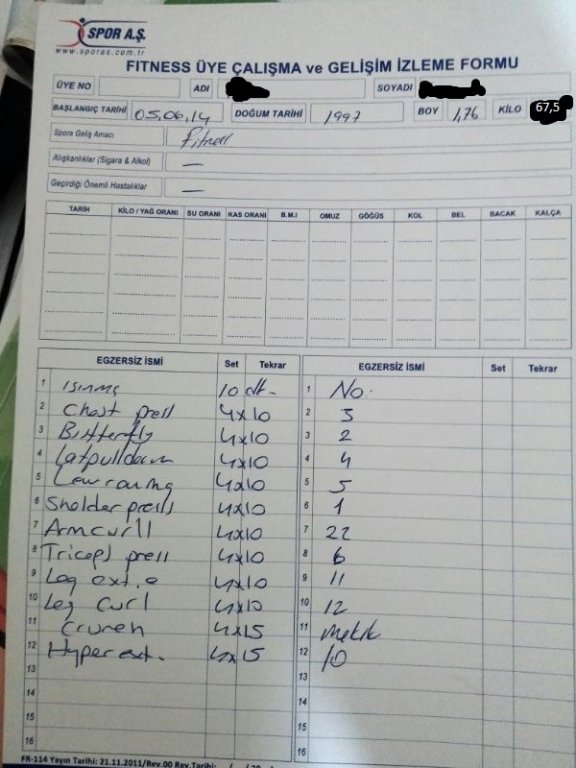 SPOR A.Ş.
www.sporas.com.tr
FITNESS ÜYE ÇALIŞMA ve GELİŞİM İZLEME FORMU
ÜYE NO ADI SOYADI
BAŞLANGIÇ TARİHİ 05.06.14 DOĞUM TARİHİ 1997 BOY 1,76 KİLO 67,5
Spora Geliş Amacı Fitness
Alışkanlıklar (Sigara & Alkol) —
Geçirdiği Önemli Hastalıklar —
TARİH KİLO / YAĞ ORANI SU ORANI KAS ORANI B.M.I OMUZ GÖĞÜS KOL BEL BACAK KALÇA
EGZERSİZ İSMİ Set Tekrar EGZERSİZ İSMİ Set Tekrar
1 ısınma 10 dk. 1 No.
2 Chest press 4x10 2 3
3 Butterfly 4x10 3 2
4 Latpulldown 4x10 4 4
5 Low rowing 4x10 5 5
6 Sholder press 4x10 6 1
7 Armcurll 4x10 7 22
8 Triceps press 4x10 8 6
9 Leg ext. 4x10 9 11
10 Leg curl 4x10 10 12
11 Crunch 4x15 11 mekik
12 Hyper ext. 4x15 12 10
13 13
14 14
15 15
16 16
FR-114 Yayın Tarihi: 21.11.2011/Rev.00 Rev.Tarihi: